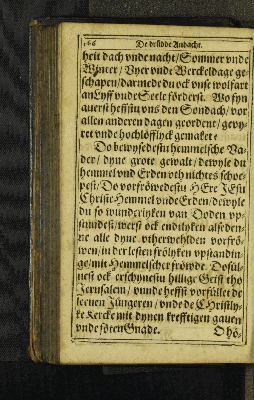 166 De drüdde Andacht.
heit dach vnde nacht / Sommer vnde
Winter / Vyer vnde Werckeldage ge-
schapen / darmede du ock vnse wolfart
an Lyff vnde Seele förderst. Wo fyn
auerst heffstu vns den Sondach / vor
allen anderen dagen geordent / gevy-
ret vnde hochlöfflyck gemaket:
Do bewysede sick hemmelsche Va-
der / dyne grote gewalt / dewyle du
hemmel vnd Erden vth nichtes schoe-
pest / Do vorfröwedestu HEre JEsu
Christe Hemmel vnde Erden / dewyle
du so wunderlyken van Doden vp-
stundest / werst ock endtlyken alse den-
ne alle dyne vtherwehlden vorfrö-
wen / in der lesten frölyken vpstandin-
ge / mit Hemmelscher fröwde. Do sül-
nest ock erschynestu hillige Geist tho
Jerusalem / vnnde heffst vorfüllet de
leeuen Jüngeren / vnde de Christly-
ke Kercke mit dynen krefftigen gauen
vnde söten Gnade.
O hö-